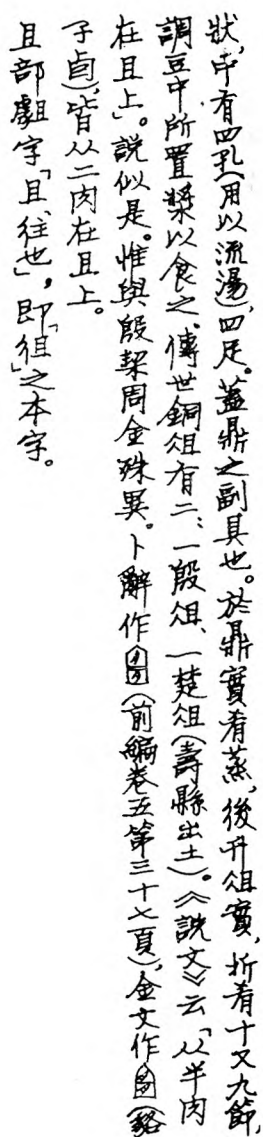 狀，中有四孔（用以流湯），四足。蓋鼎之副具也。於鼎實肴蒸，後升俎實，折肴十又九節，
調豆中所置漿以食之。傳世銅俎有二：一殷俎、一楚俎（壽縣出土）。《說文》云「从半肉
在且上」。說似是。惟與殷栔周金殊異。卜辭作（前編卷五第三十七頁），金文作（貉
子卣），皆从二肉在且上。
且部䖕字「且，往也」，即「徂」之本字。